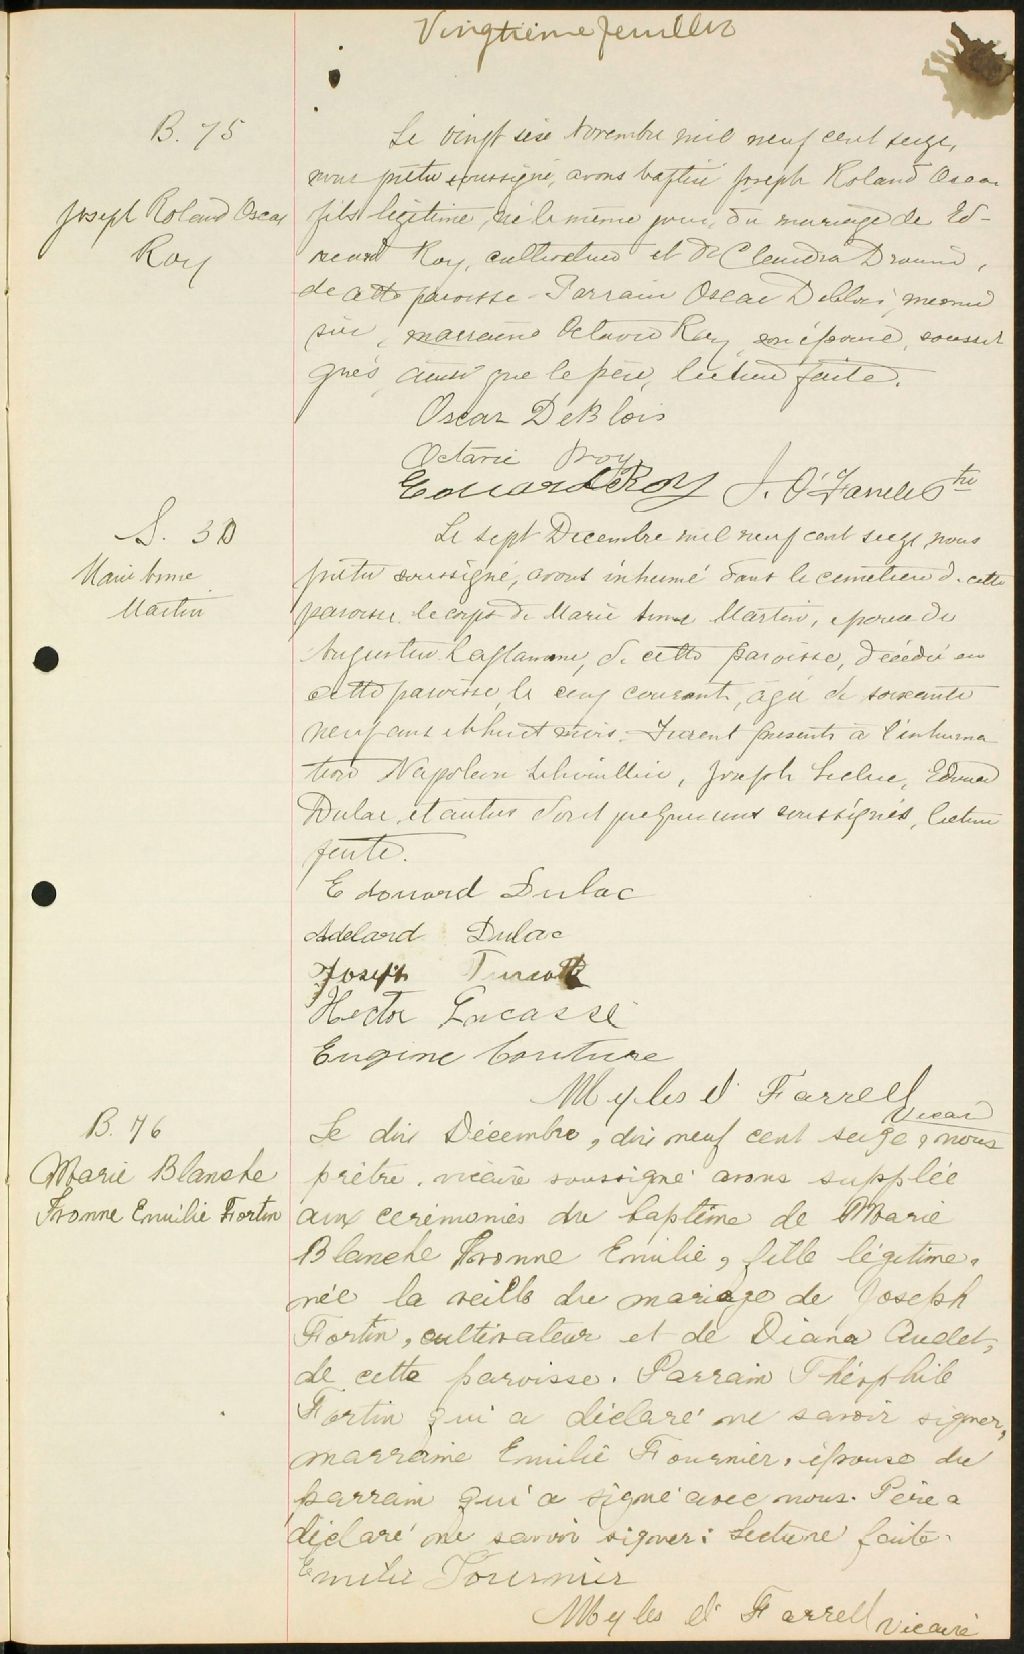 Vingtième feuillet
B. 75
Joseph Roland Oscar
Roy
Le vingt six Novembre mil neuf cent seize,
nous prêtre soussigné, avons baptisé Joseph Roland Oscar
fils légitime, né le même jour, du mariage de Ed-
ouard Roy, cultivateur et de Claudia Drouin,
de cette paroisse - Parrain Oscar Deblois, menui
sier, marraine Octavie Roy, son épouse, soussi
gnés, ainsi que le père, lecture faite.
Oscar DeBlois
Octavie Roy
Edouard Roy J. O'Farrell Ptre
S. 30
Marie Anne
Martin
Le sept Decembre mil neuf cent seize nous
prêtre soussigné, avons inhumé dans le cimetière de cette
paroisse le corps de Marie Anne Martin, épouse de
Augustin Laflamme, de cette paroisse, décédée en
cette paroisse, le cinq courant, âgée de soixante
neuf ans et huit mois. Furent presents à l'inhuma
tion Napoleon Joseph Edouard
Dulac, et autres dont quelques uns soussignés, lecture
faite.
Edouard Dulac
Adelard Dulac
Joseph Turcotte
Hector Lacasse
Eugine Couture
Myles O' Farrell
vicaire
B. 76
Marie Blanche
Yvonne Emilie Fortin
Le dix Décembre, dix neuf cent seize, nous
prêtre, vicaire soussigné avons supplée
aux cerémonies du baptême de Marie
Blanche Yvonne Emilie, fille légitime,
née la veille du mariage de Joseph
Fortin, cultivateur et de Diana Audet,
de cette paroisse. Parrain Théophile
Fortin qui a déclaré ne savoir signer,
marraine Emilie Fournier, épouse du
parrain qui a signé avec nous. Père a
déclaré ne savoir signer: Lecture faite.
Emilie Fournier
Myles O' Farrell vicaire